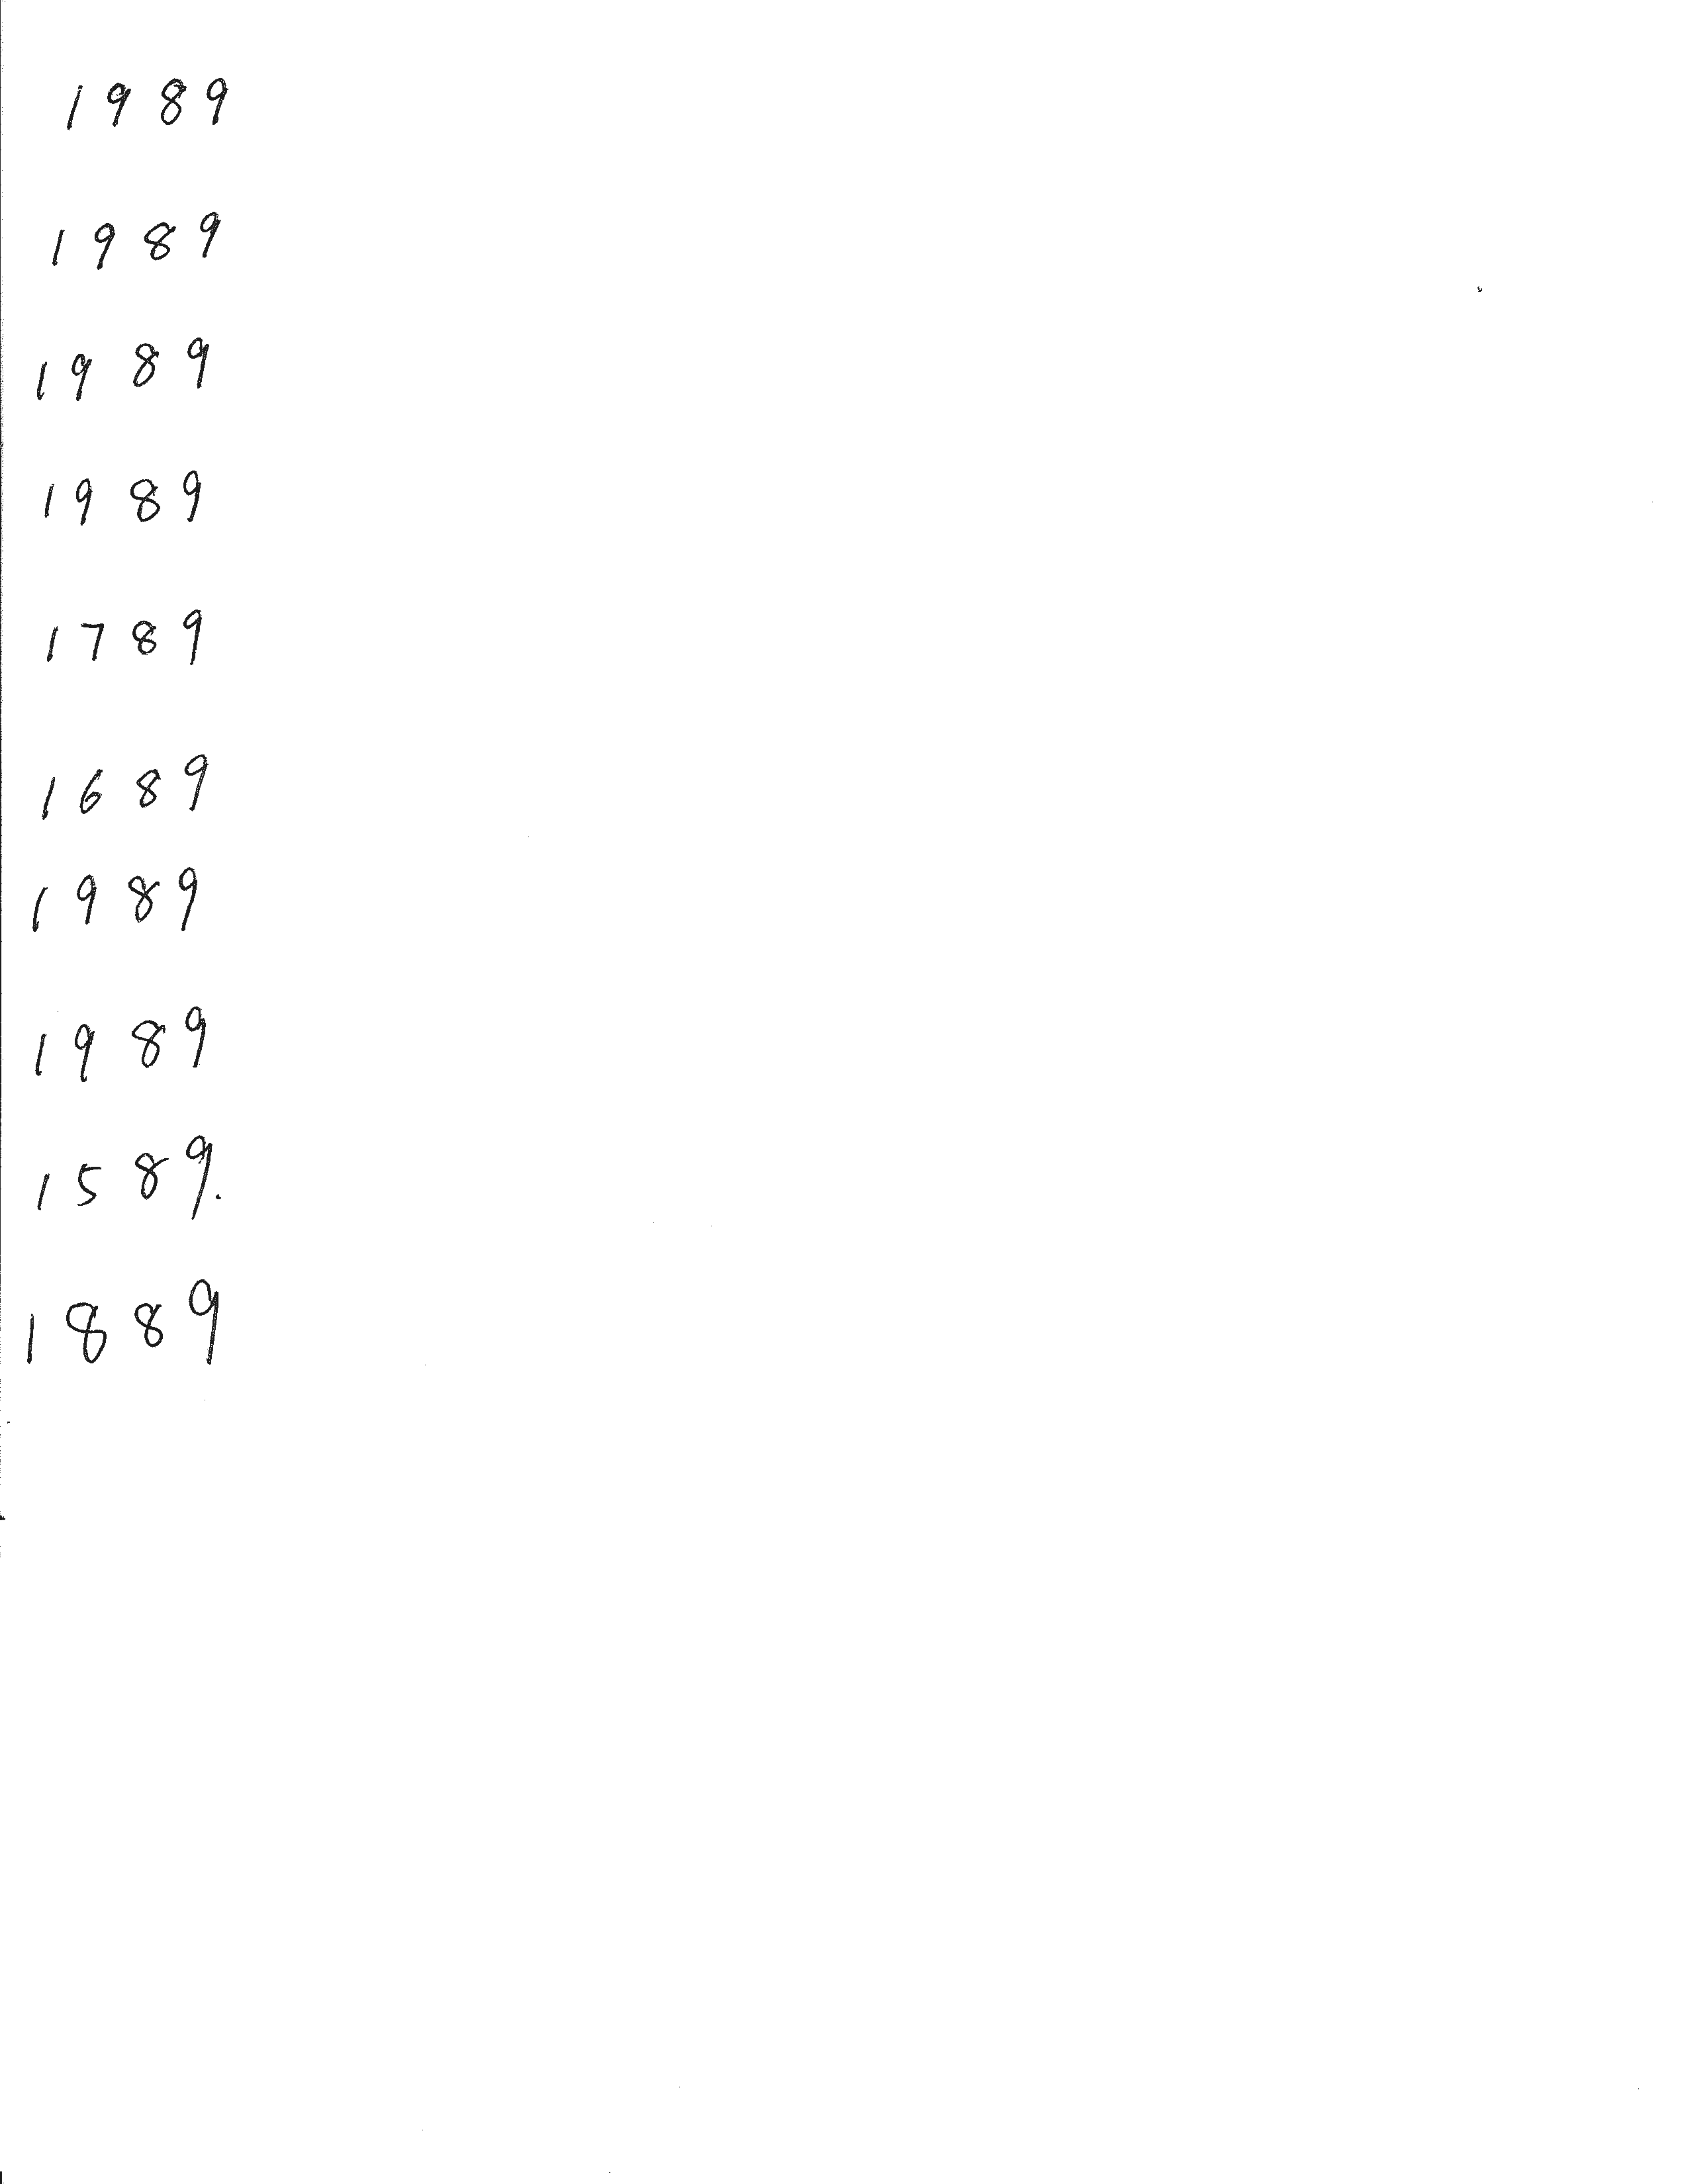 1989
1989
1989
1989
1789
1689
1989
1989
1589.
1889